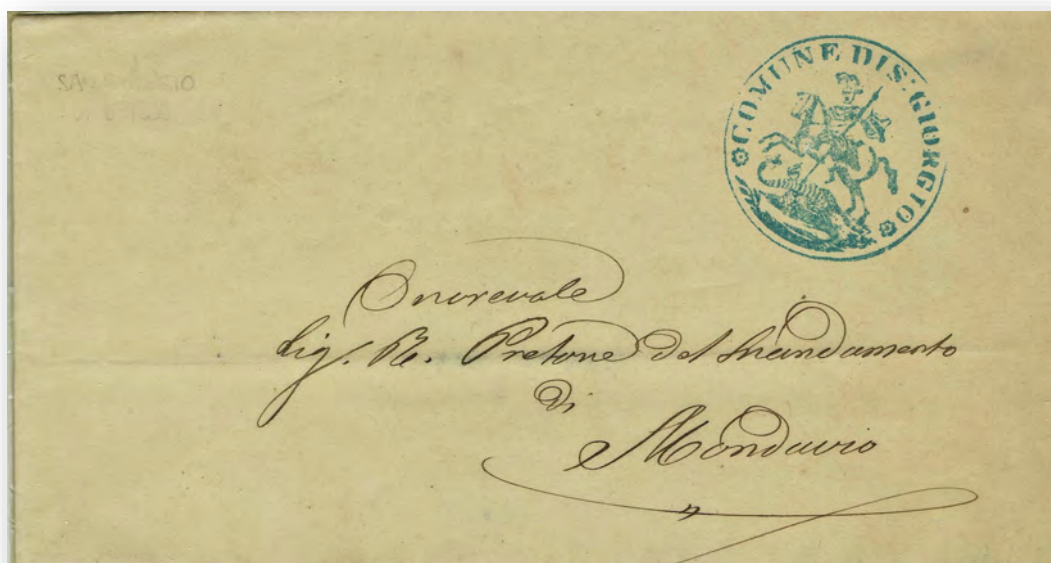 COMUNE DI S. GIORGIO
Onorevole
Sig. R. Pretore del Mandamento
di
Mondavio